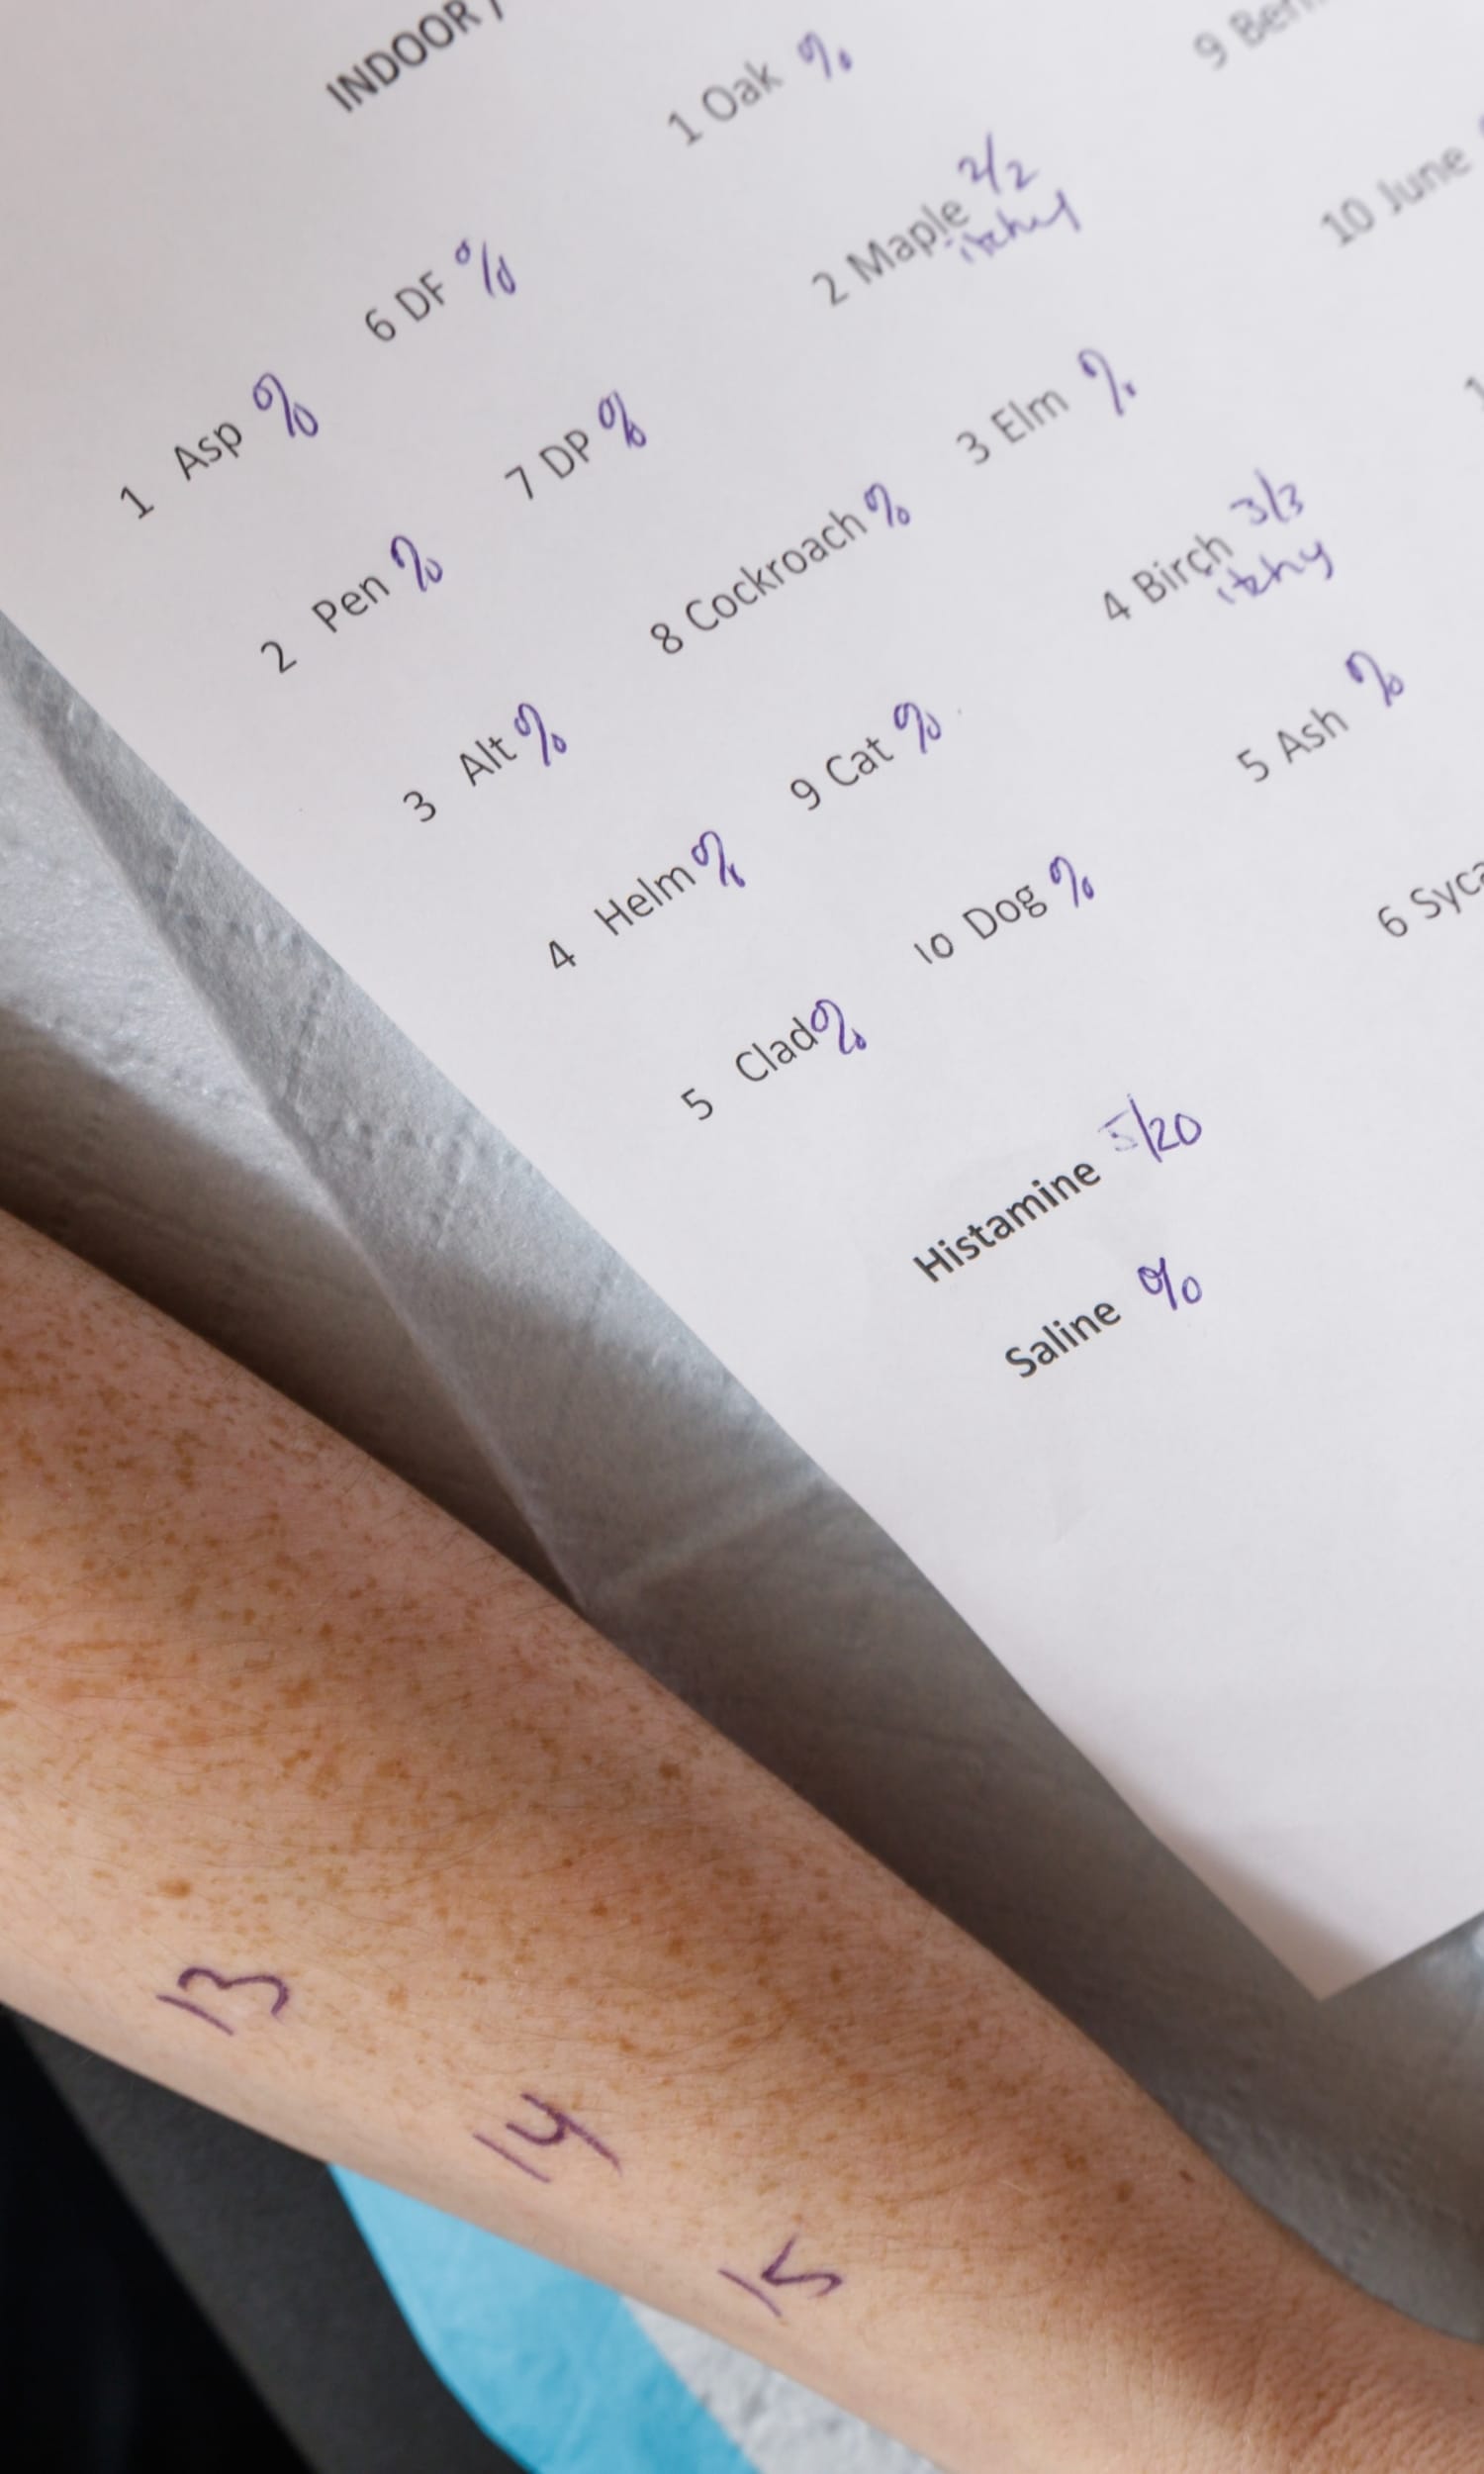 INDOOR
1 Asp 0/0
2 Pen 0/0
3 Alt 0/0
4 Helm 0/0
5 Clad 0/0
6 DF 0/0
7 DP 0/0
8 Cockroach 0/0
9 Cat 0/0
10 Dog 0/0
Histamine 5/20
Saline 0/0
1 Oak 0/0
2 Maple 2/2
itchy
3 Elm 0/0
4 Birch 3/3
itchy
5 Ash 0/0
6 Syca
9 Ber
10 June
13
14
15